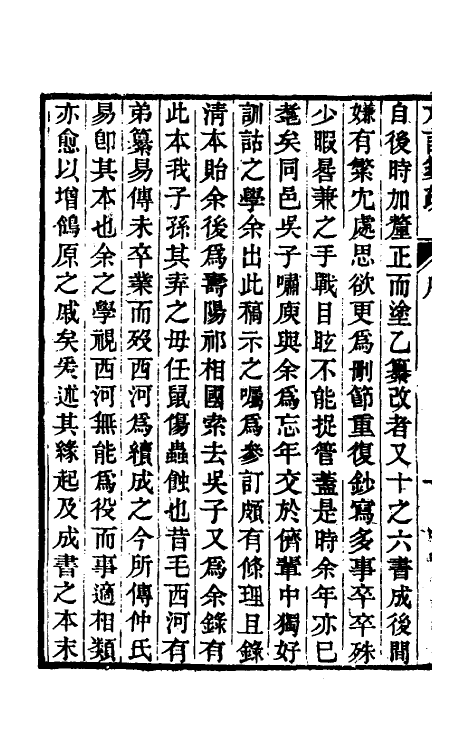 自後時加釐正而塗乙纂改者又十之六書成後間
嫌有繁冗處思欲更爲刪節重復鈔寫多事卒卒殊
少暇晷兼之手戰目眩不能捉管蓋是時余年亦已
耄矣同邑吳子嘯庾與余爲忘年交於儕輩中獨好
訓詁之學余出此稿示之囑爲參訂頗有條理且錄
清本貽余後爲壽陽祁相國索去吳子又爲余錄有
此本我子孫其弆之毋任鼠傷蟲蝕也昔毛西河有
弟纂易傳未卒業而歿西河爲續成之今所傳仲氏
易卽其本也余之學視西河無能爲役而事適相類
亦愈以增鴒原之戚矣爰述其緣起及成書之本末